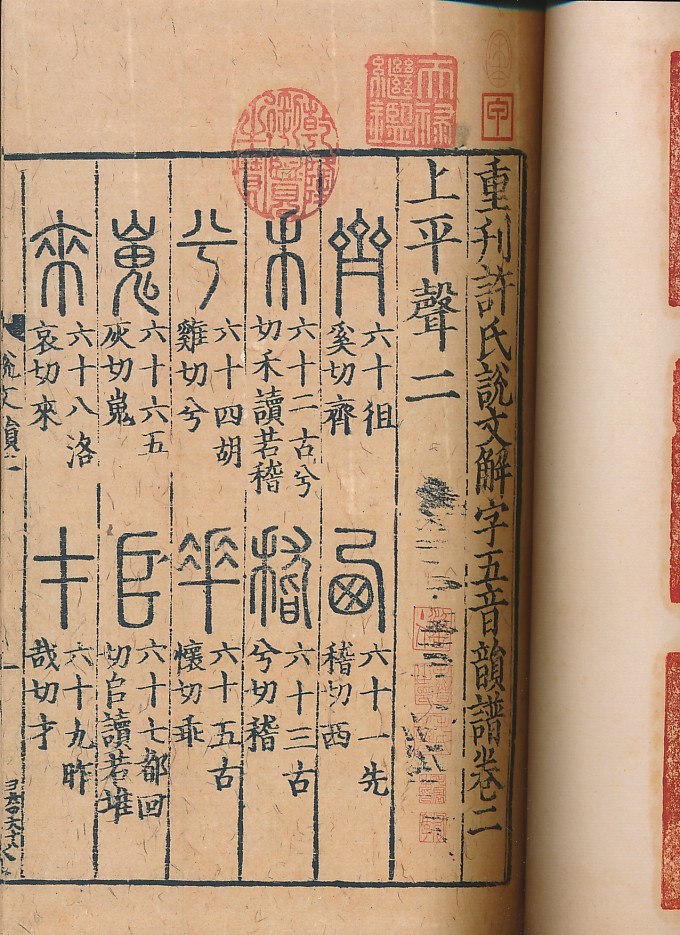 天祿繼鑑
乾隆御覽之寶
重刊許氏說文解字五音韻譜卷二
上平聲二
齊
六十徂
奚切齊
西
六十一先
稽切西
𥝌
六十二古兮
切禾讀若稽
稽
六十三古
兮切稽
兮
六十四胡
雞切兮
𠦬
六十五古
懷切乖
嵬
六十六五
灰切嵬
𠂤
六十七都回
切𠂤讀若堆
來
六十八洛
哀切來
才
六十九昨
哉切才